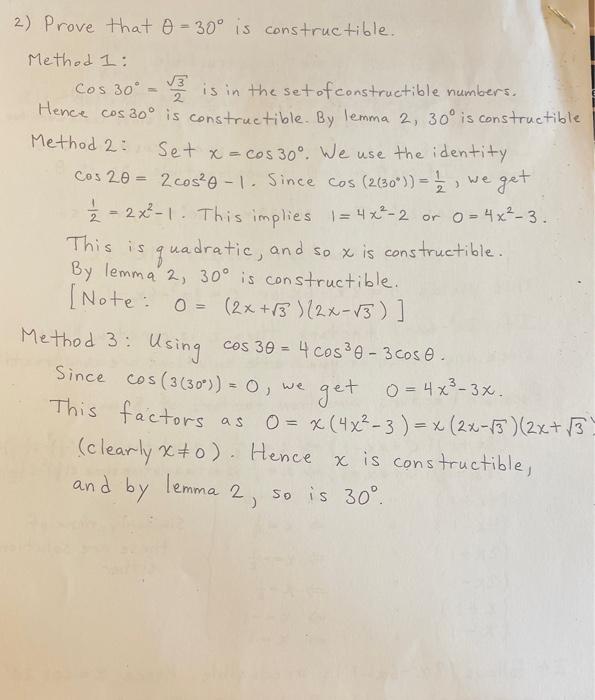 2) Prove that θ = 30° is constructible.
Method 1:
cos 30° = √3/2 is in the set of constructible numbers.
Hence cos 30° is constructible. By lemma 2, 30° is constructible
Method 2: Set x = cos 30°. We use the identity
cos 2θ = 2cos²θ - 1. Since cos (2(30°)) = 1/2, we get
1/2 = 2x² - 1. This implies 1 = 4x² - 2 or 0 = 4x² - 3.
This is quadratic, and so x is constructible.
By lemma 2, 30° is constructible.
[Note: 0 = (2x + √3)(2x - √3)]
Method 3: Using cos 3θ = 4 cos³θ - 3 cos θ.
Since cos (3(30°)) = 0, we get 0 = 4x³ - 3x.
This factors as 0 = x(4x² - 3) = x(2x - √3)(2x + √3)
(clearly x ≠ 0). Hence x is constructible,
and by lemma 2, so is 30°.